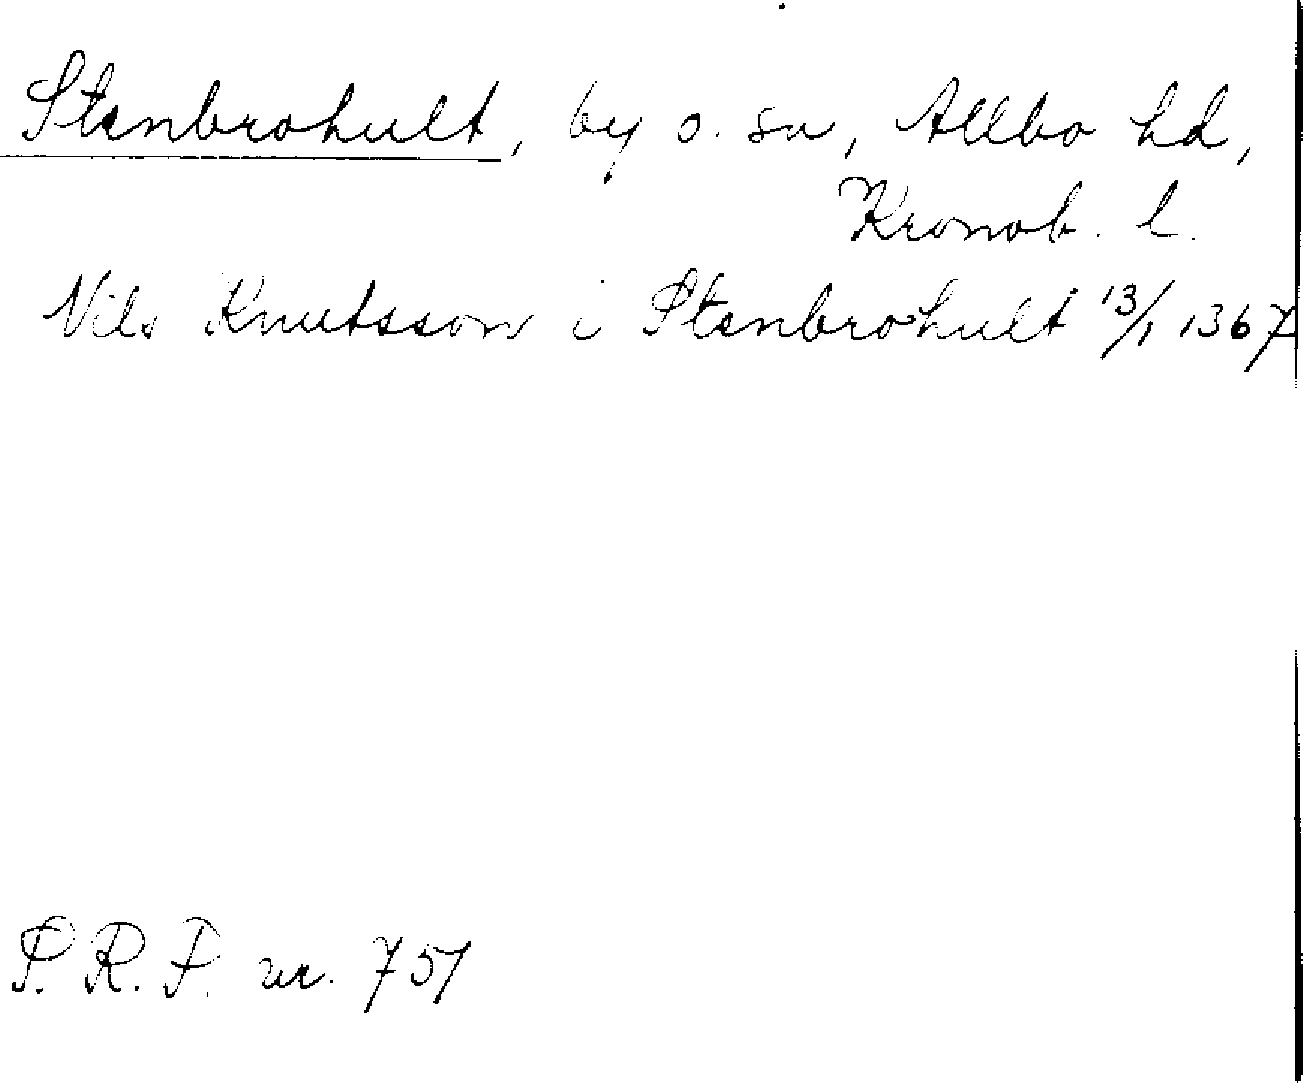 Stenbrohult, by o. sn, Allbo hd,
Kronob. l.
Nils Knutsson i Stenbrohult 13/1 1367
P. R. P. nr. 751